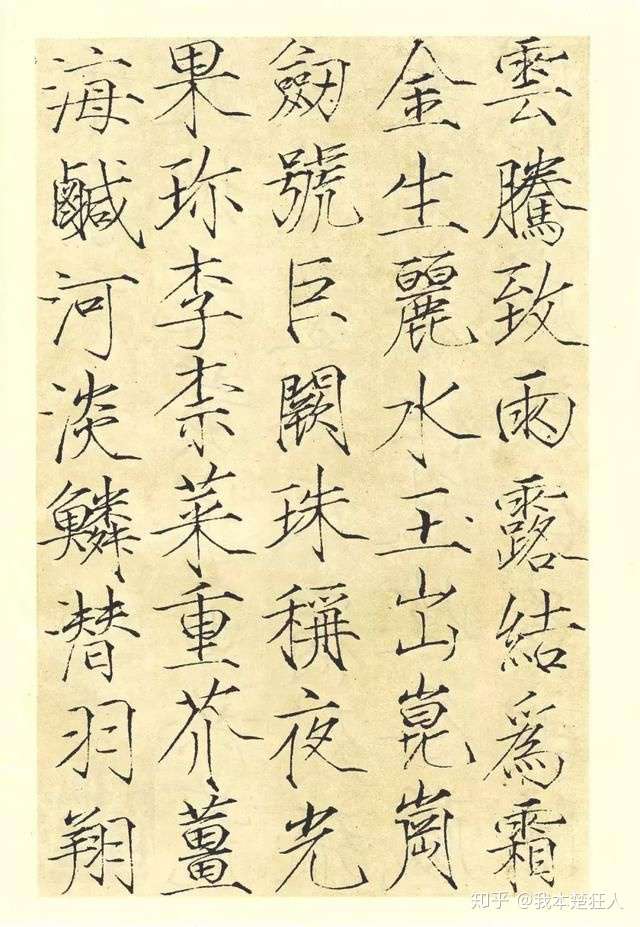 雲騰致雨露結爲霜
金生麗水玉出崑崗
劒號巨闕珠稱夜光
果珎李柰菜重芥薑
海鹹河淡鱗潜羽翔
知乎 @我本楚狂人